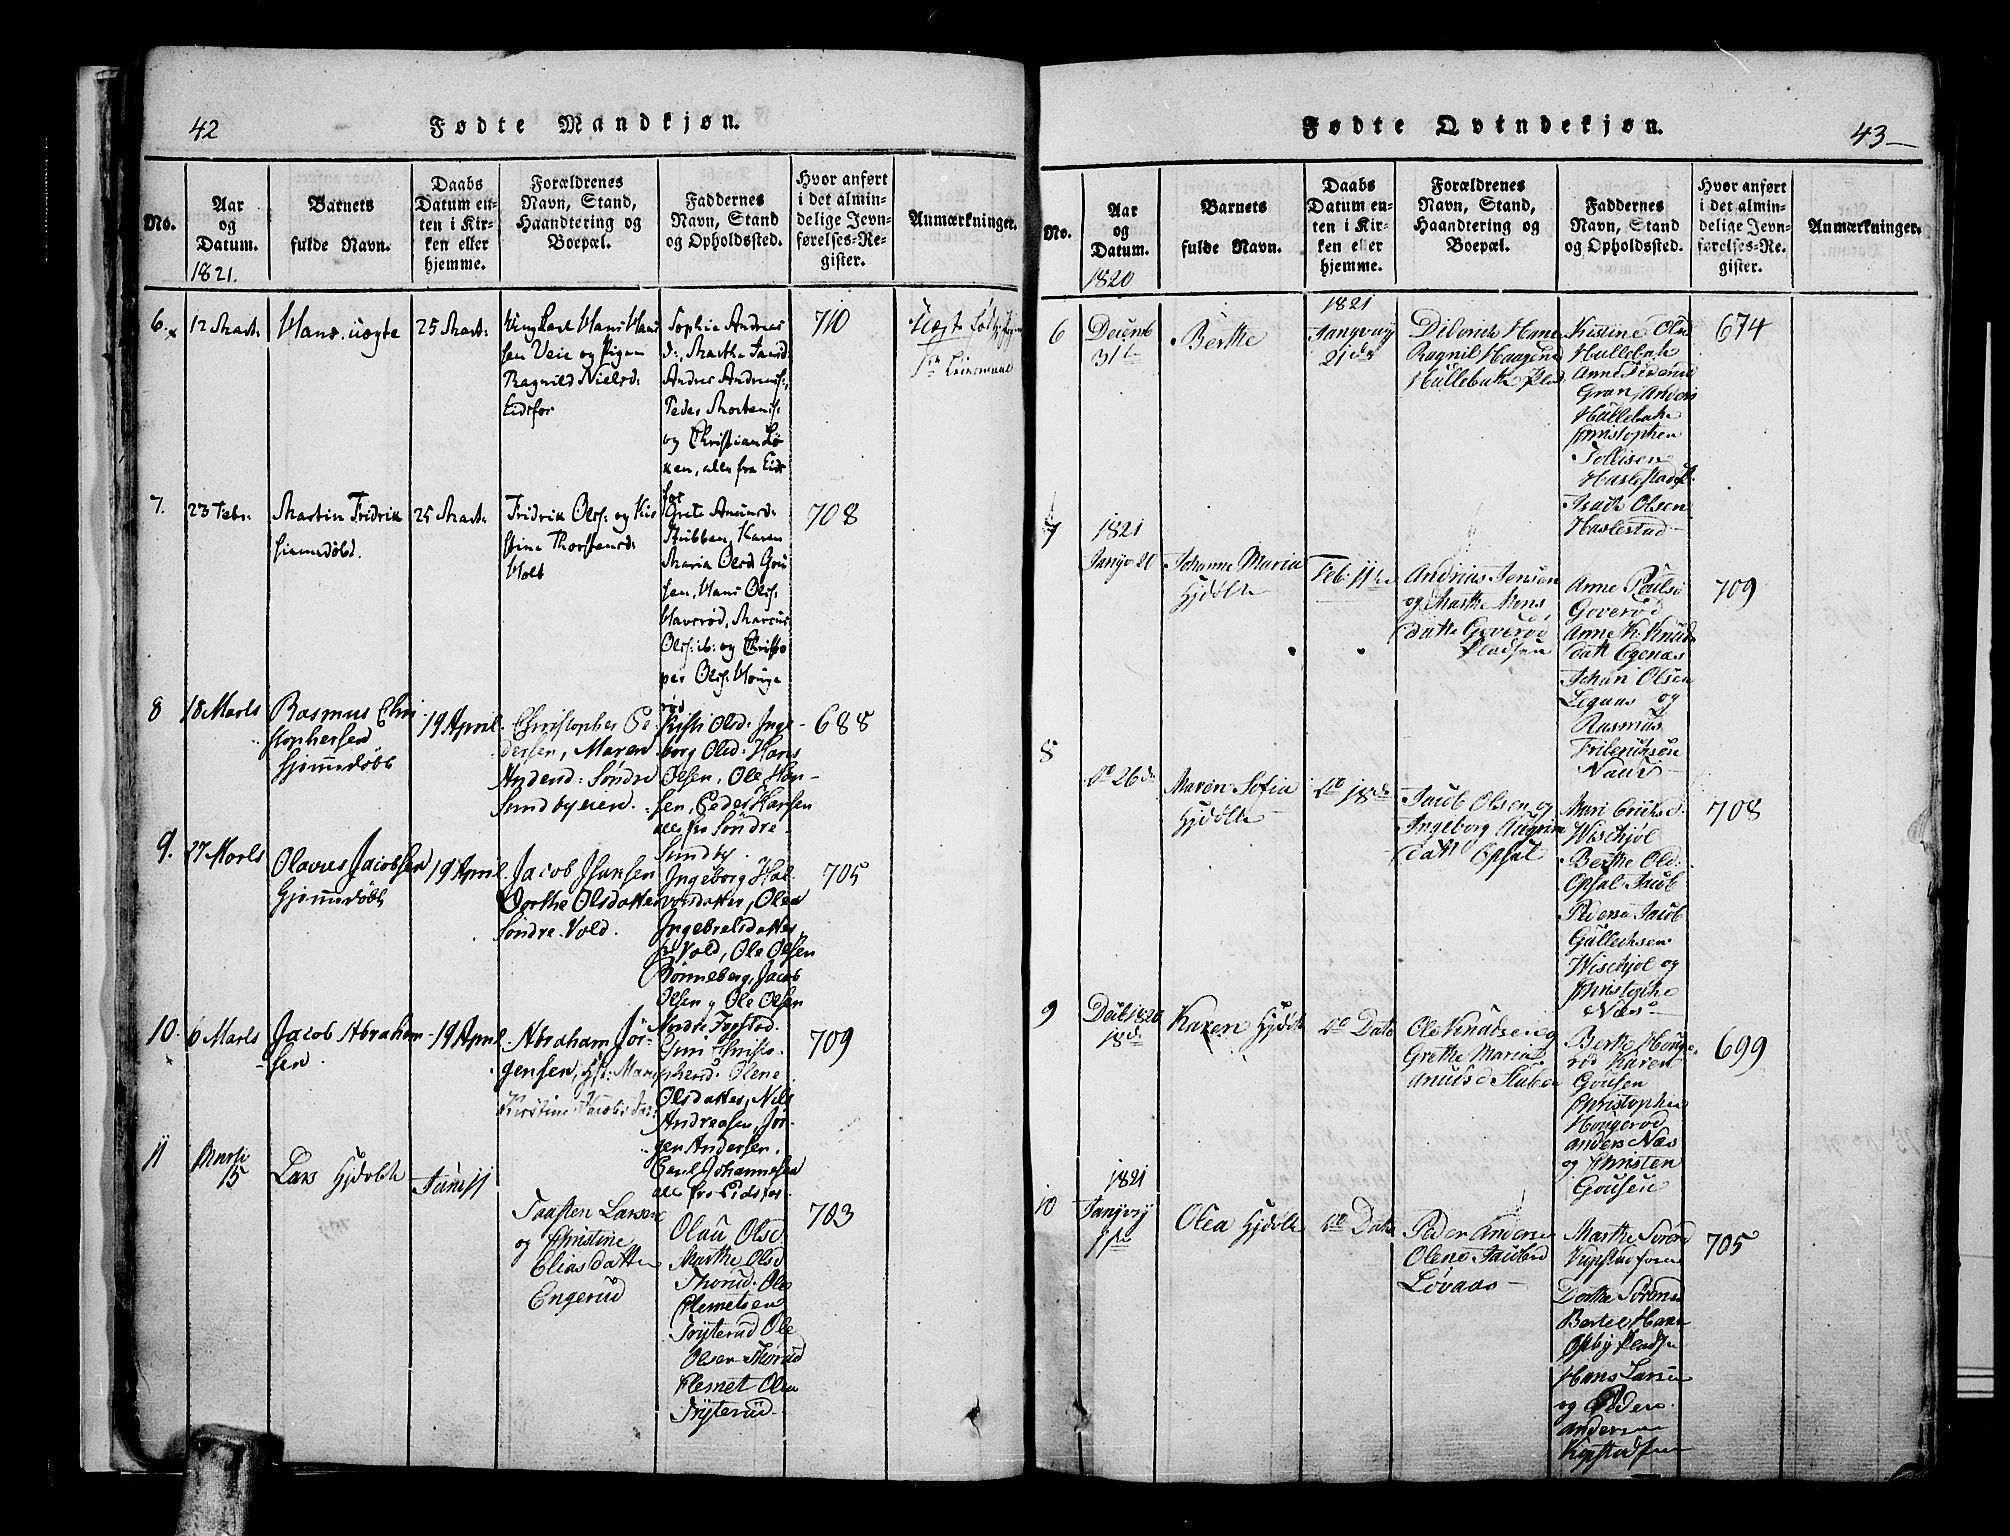 42
Fødte Mandkjøn.
No.
Aar
og
Datum.
1821.
Barnets
fulde Navn.
Daabs
Datum en-
ten i Kir-
ken eller
hjemme.
Forældrenes
Navn, Stand,
Haandtering og
Boepæl.
Faddernes
Navn, Stand
og Opholdssted.
Hvor anført
i det almin-
delige Jevn-
førelses-Re-
gister.
Anmærkninger.
6.
12 Mart:
Hans, uægte
25 Mart:
Ungkarl Hans Han
sen Veie og Pigen
Ragnild Nielsd:
Eidsfos
Sophia Andreas
d:, Marthe Jansd:
Andres Andreas:,
Peder Mortens:
og Christian Lø
ken, alle fra Eids
fos
710
7.
23 Febr:
Martin Fridrik
hiemmedøbt.
25 Mart:
Fridrik Ols: og Kir
stine Thorstensd:
Holt
Grete Amunsd:
Stubben, Karen
Maria Olsd: Gou
sen, Hans Ols:
Haverød, Marcus
Ols: ib: og Christo
per Ols: Houge
rød
708
8
18 Marts
Rasmus Chri
stophersen
hjemmedøbt
19 April
Christopher Pe
dersen, Maren
Søndre
Sundbyeien.
Kristi Olsd: Inge-
borg Olsd: Hans
Olsen, Ole Han-
sen, Peder Hansen
alle fra Søndre-
Sundby.
688
9.
27 Marts
Olavus Jacobsen
Hjemmedøbt
19 April
Jacob Hansen
Dorthe Olsdatter
Søndre Vold.
Ingeborg Hal-
vorsdatter, Olea
Ingebretsdatter,
Vold, Ole Olsen
Rønneberg, Jacob
Olsen og Ole Olsen
705
10.
6 Marts
Jacob Abraham-
sen
19 April
Abraham Jør-
gensen, Hst: Mari
Kirstine Jacobsdat:
Chris-
Olene
Olsdatter, Nils
Andreasen, Jør-
gen Andersen,
Poul Johannesen
alle fra Eidsfos.
709
11
Marti
15
Lars Hjdøbt
Juni 11
Taasten Larsen
og Christine
Eliasdatter
Engerud
Olau Olsd.
Marthe Olsd
Thorud. Ole
Clemetsen
Trÿterud Ole
Olsen Thorud
Clemet Olsen
Trÿterud
703
43
Fødte Qvindekjøn.
No.
Aar
og
Datum.
1820
Barnets
fulde Navn.
Daabs
Datum en-
ten i Kir-
ken eller
hjemme.
Forældrenes
Navn, Stand,
Haandtering og
Boepæl.
Faddernes
Navn, Stand
og Opholdssted.
Hvor anført
i det almin-
delige Jevn-
førelses-Re-
gister.
Anmærkninger.
6
Decemb
31te
Berthe
1821
Januarÿ
21de
Diderich Hans
Ragnil Haagens
Hullebak Plad.
Kristine Ols
Hullebak
Anne
Gran Anders
Hullebak
Christophen
Tollisen
Haslestad
Olsen
Haslestad
674
7
1821
Janÿ 20
Johanne Maria
Hjdøbte
Feb: 11te
Andrias Jensen
og Marthe Mons
datte Goverød
Pladsen
Anne Poulse
Goverød
Anne K: Knuds
datt Egenæs
Johan Olsen
Legaas og
Rasmus
Friderichsen
709
8
do 26de
Maren Sofia
Hjdøbte
do 18de
Jacob Olsen og
Ingeborg
datt Opsal
Mari Erichsd.
Wischjøl
Berthe Old.
Opsal Jacob
Pederse Jacob
Gullichsen
Wischjøl og
Christophe
Næs
708
9
Decb 1820
18de
Karen Hjdøbt
do Dato
Ole Knudsen og
Grethe Maria
Amuisd Stuben
Berthe Houge-
rød Karen
Gousen
Christophen
Hougerød
anders Næs
og Christen
Gousen
699
10
1821
Januÿ
Olea Hjdøbte
do Dato
Peder Anderse
Olene Jacobsd
Løvaas
Marthe Sørend
Dorthe Sørens
Bertel Hans
Opbÿ Pladsen
Hans Larsen
og Peder
andersen
705